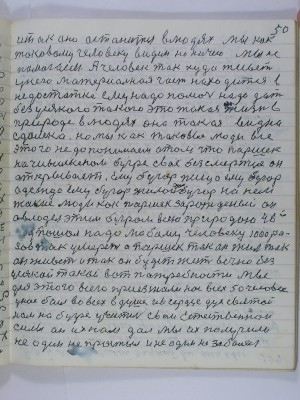 50
и так оно останется в людях мы как
таковому человеку видим но ничего мы не
помогаем А человек так худо живет
у него материальная часть находится в
недостатке ему надо помочь надо дать
без всякого такого это такая жизнь в
природе в людях она такая видна
сделана. но мы как таковые люди все
этого не допонимаем о том что паршек
на чивилкином бугре свое бессмертие он
открывает, ему бугор пищу ему бугор
одежду ему бугор жилой бугор на нем
такие люди как паршек зарожденный он
в людях этим бугром всею природою чв
пошол надо любому человеку 1000 ра-
зов так умереть а паршек так он жил так
он живет и так он будет жить вечно без
всякой такой вот потребности мы
для этого всего признали как все 50 человек
у нас был во всех в душе и в сердце дух святой
нам на бугре увитих свои естественной
силы он их нам дал мы их получили
не один не простыл и не один не заболел